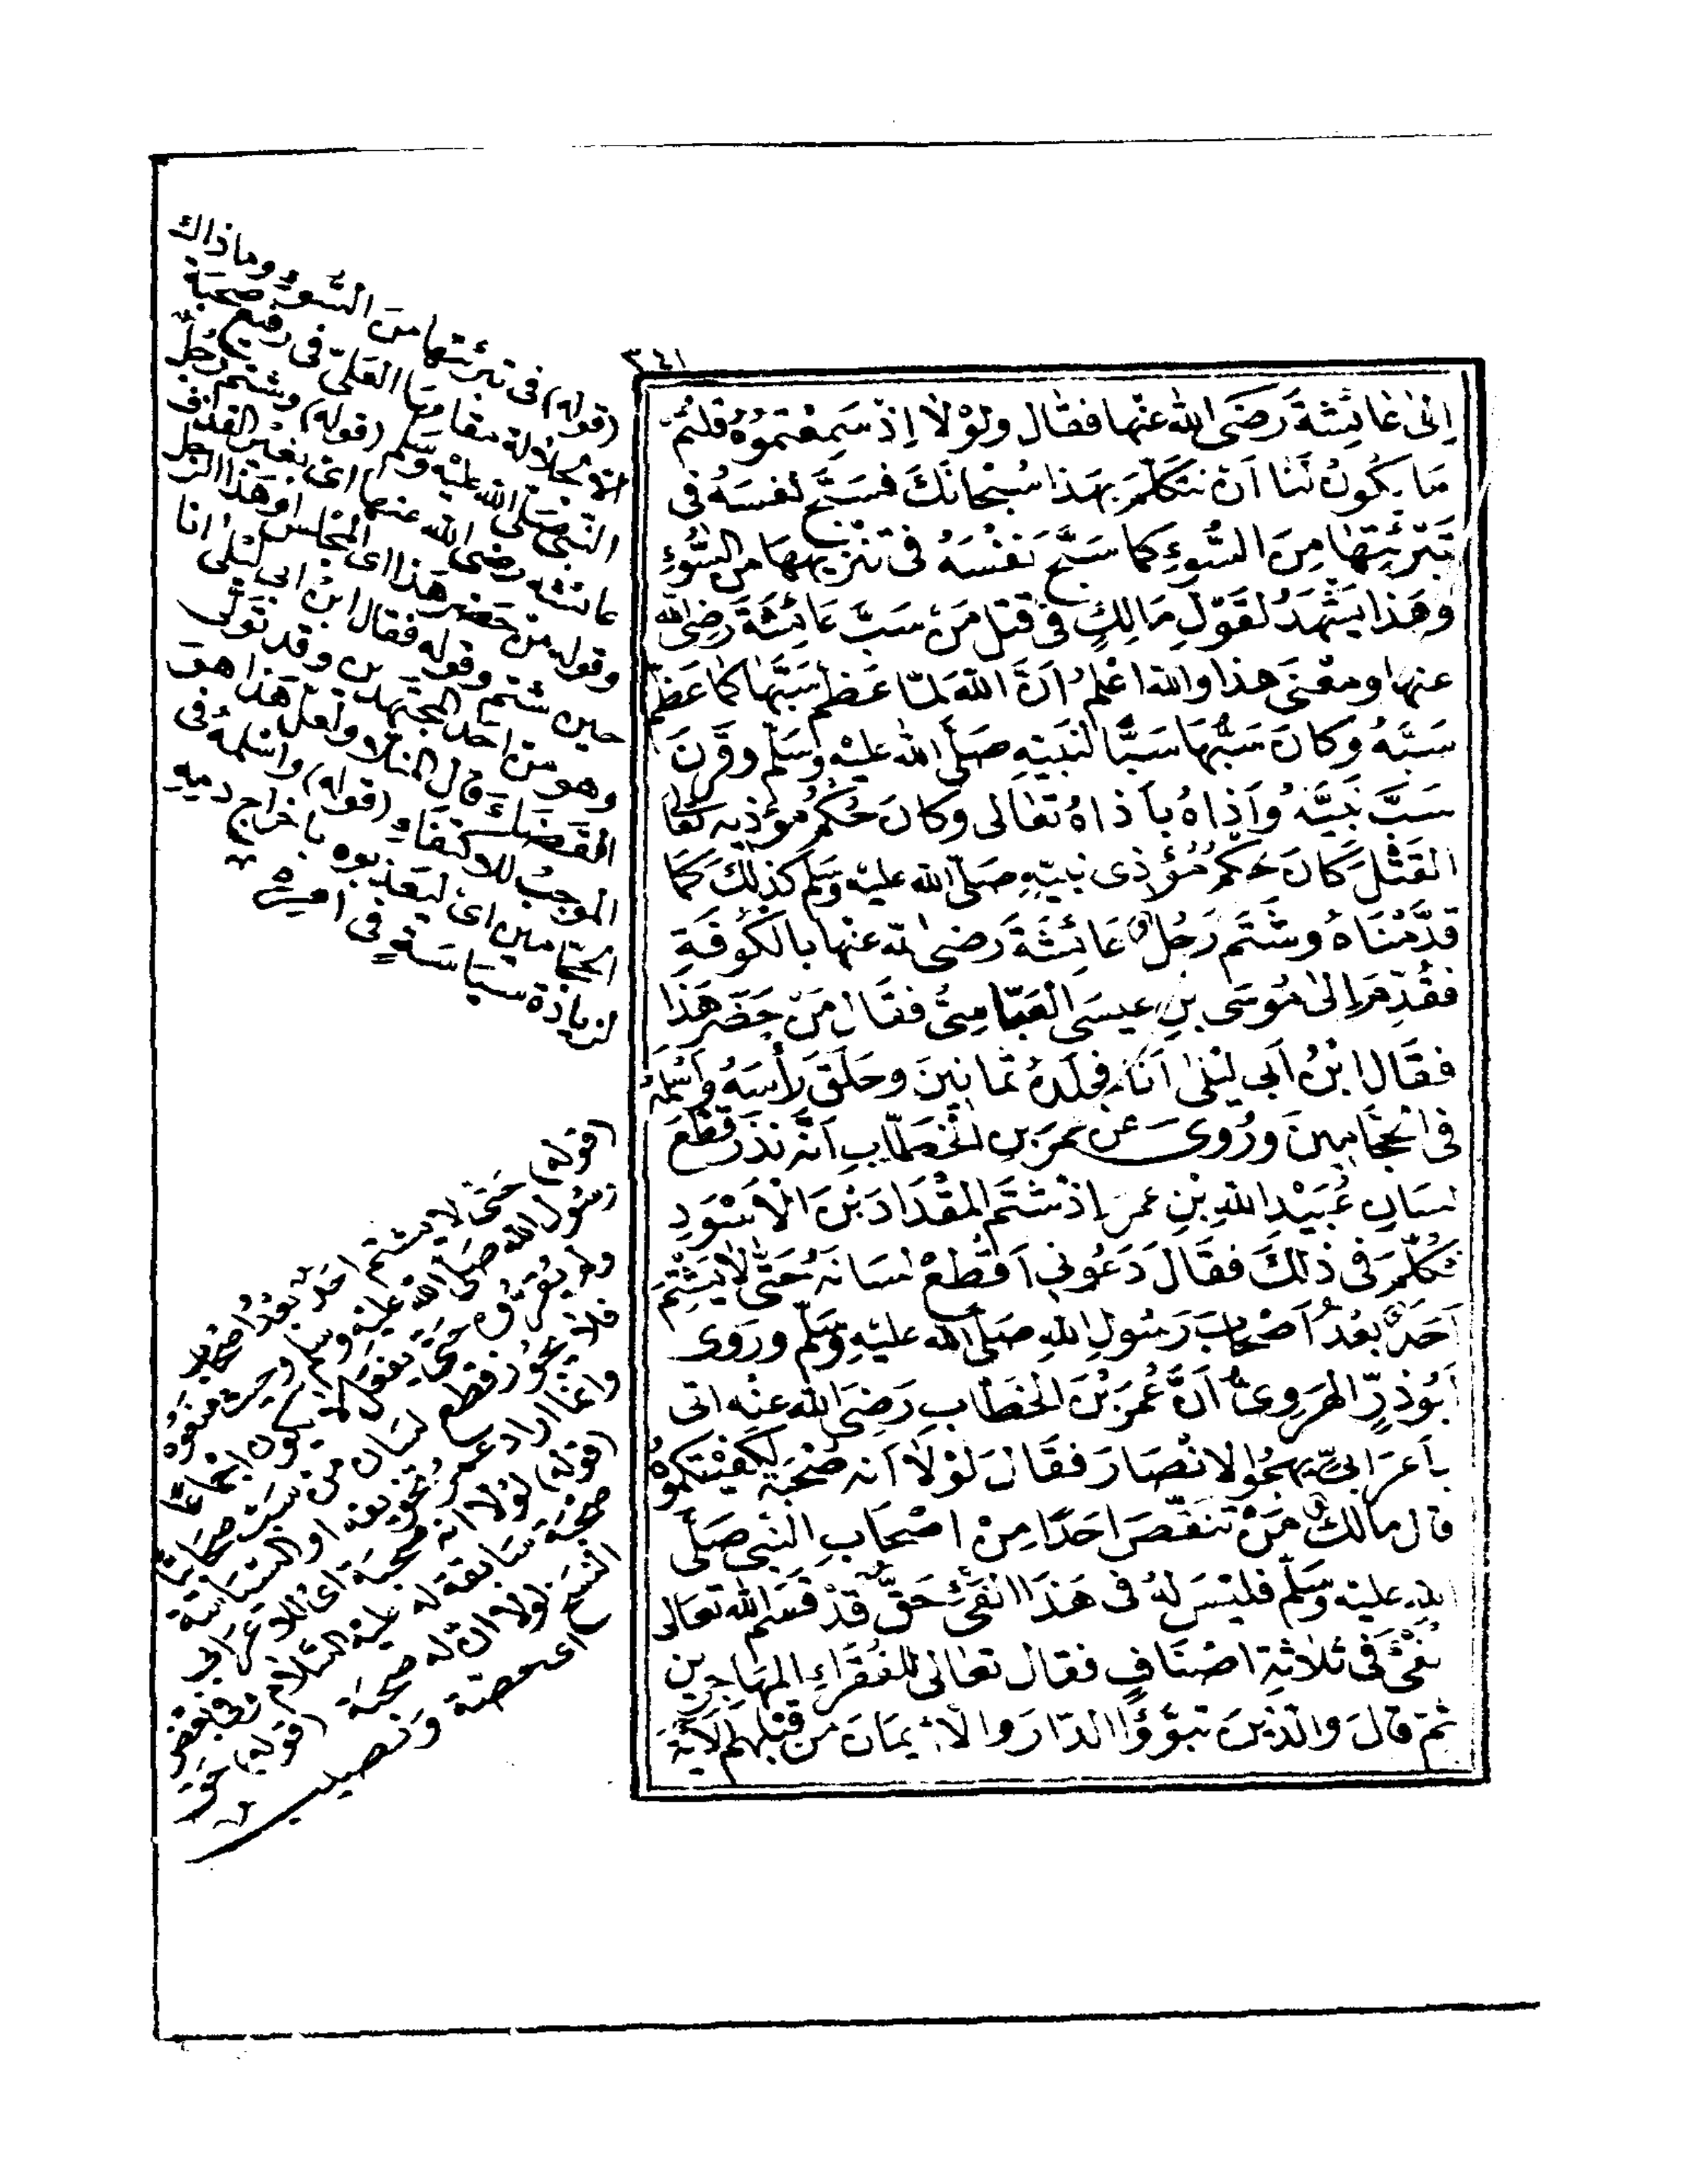 ٣٤١
اِلىٰ عَائِشَةَ رَضِىَ اللهُ عَنْها فقَال ولَوْلَا اِذْ سَمِعْتموُهُ قلتُمْ
مَا يكُونُ لَنَا اَنْ نتَكلّمَ بهَذا سُبْحانَكَ فسَبَّح نفسَهُ فى
تَبْرئَتهَا مِنَ السُّوءِ كما سَبَّح نَفْسَهُ فى تَنْزيهِهَا من السُّوءِ
وهَذا يَشْهَدُ لقَوْلِ مَالِكٍ فى قتل مَنْ سَبَّ عَائِشَةَ رَضِىَ الله
عنها ومعْنَى هذا والله اعْلمُ اَنَّ اللهَ لمّا عَظمَ سَبَّهَا كمَا عَظمَ
سَبَّهُ وكَانَ سَبُّهَا سَبًّا لنَبيّهِ صَلَّى اللهُ عليْهِ وسَلّم وقَرَنَ
سَبَّ نَبِيَّهُ وَاَذاهُ باَذاهُ تعَالى وكانَ حُكمُ مُؤذيهِ تعَالى
القتْلَ كَانَ حُكمُ مُؤذى نبيّهِ صَلّى الله عليْهِ وسَلم كذلِكَ كمَا
قدَّمْنَاهُ وشَتَم رَجُلٌ عَائِشَةَ رَضىَ الله عَنهَا بالكوُفَةِ
فقُدِّمَ اِلىٰ مُوسَى بنِ عيسَى العَبّاسِىِّ فقَال مَنْ حَضَر هَذَا
فقَال ابْنُ اَبى لَيْلىٰ اَنَا فجلَدَهُ ثمَانينَ وحَلَقَ رَأسَهُ وَاَسْلمَهُ
فى الحجَّامِينَ ورُوىَ عَنْ عمَرَ بنِ الخطّابِ اَنَّه نذَرَ قَطْعَ
لسَانِ عُبَيْدِ اللهِ بْنِ عمرَ اِذْ شَتَم المقْدَادَ بْنَ الاَسْوَدِ
فكُلِّمَ فى ذلِكَ فقَال دَعُونى اَقْطَعْ لسَانَهُ حَتّى لَا يَشْتِمَ
اَحَدٌ بَعْدُ اَصْحَابَ رَسُولِ اللهِ صَلّى الله عليْهِ وسَلّم ورَوى
اَبُو ذرٍّ الهَرَوِىُّ اَنَّ عُمَرَ بْنَ الخطّابِ رَضِىَ الله عنه اتى
باَعرَابىٍّ يهجُوا الانْصَارَ فقَال لَوْلَا اَنّ له صُحْبَةً لكفيْتكموُهُ
قال مالكٌ مَنْ تنَقّصَ احَدًا مِنْ اصْحَابِ النّبىِّ صَلّى
اللهِ عليْه وسَلّم فليْسَ لهُ فى هَذَا الفَئِْ حَقٌّ قدْ قسَم الله تعَالى
الفَئَْ فى ثَلاثةِ اصْنَافٍ فقال تعَالى للفقرَاءِ المهاجِرين
ثم قالَ والذينَ تبوّؤُا الدّارَ والاِيمانَ من قبْلِهِم الآيَةَ
(قوله) فى تبرئتها من السُّوء وماذاك
الا لجلالة مقامها العلىّ فى رفيع صحبة
النبىّ صلى الله عليه وسلم (قوله) وشتم رجلٌ
عائشة رضى الله عنها اى بغير القذف
وقوله من حضر هذا اى المجلس او هذا الرّجل
حين شتم وقوله فقال ابن ابى ليلى انا
وهو من احد المجتهدين وقد تولى
القضاء قال المنلا ولعل هذا هو
الموجب للاكتفاء (قوله) واسلمه فى
الحجّامين اى ليعذبوه باخراج دمه
لزيادة سياسة فى امره
(قوله) حتى لا يشتم احد بعدُ اصحاب
رسول الله صلى الله عليه وسلم وحيث منعوه
ولم يفرق حتى يقول لا يكون اجماعًا
فلا يجوز قطع لسان من سبّ صحابيًّا
وانما اراد عمر تخويفه او السياسة
(قوله) لولا انه صحبة اى للاعرابى
صحبة سابقة له عليه السلام وفى بعض
النسخ لولا ان له صحبة (قوله) حق
اى حصة ونصيب